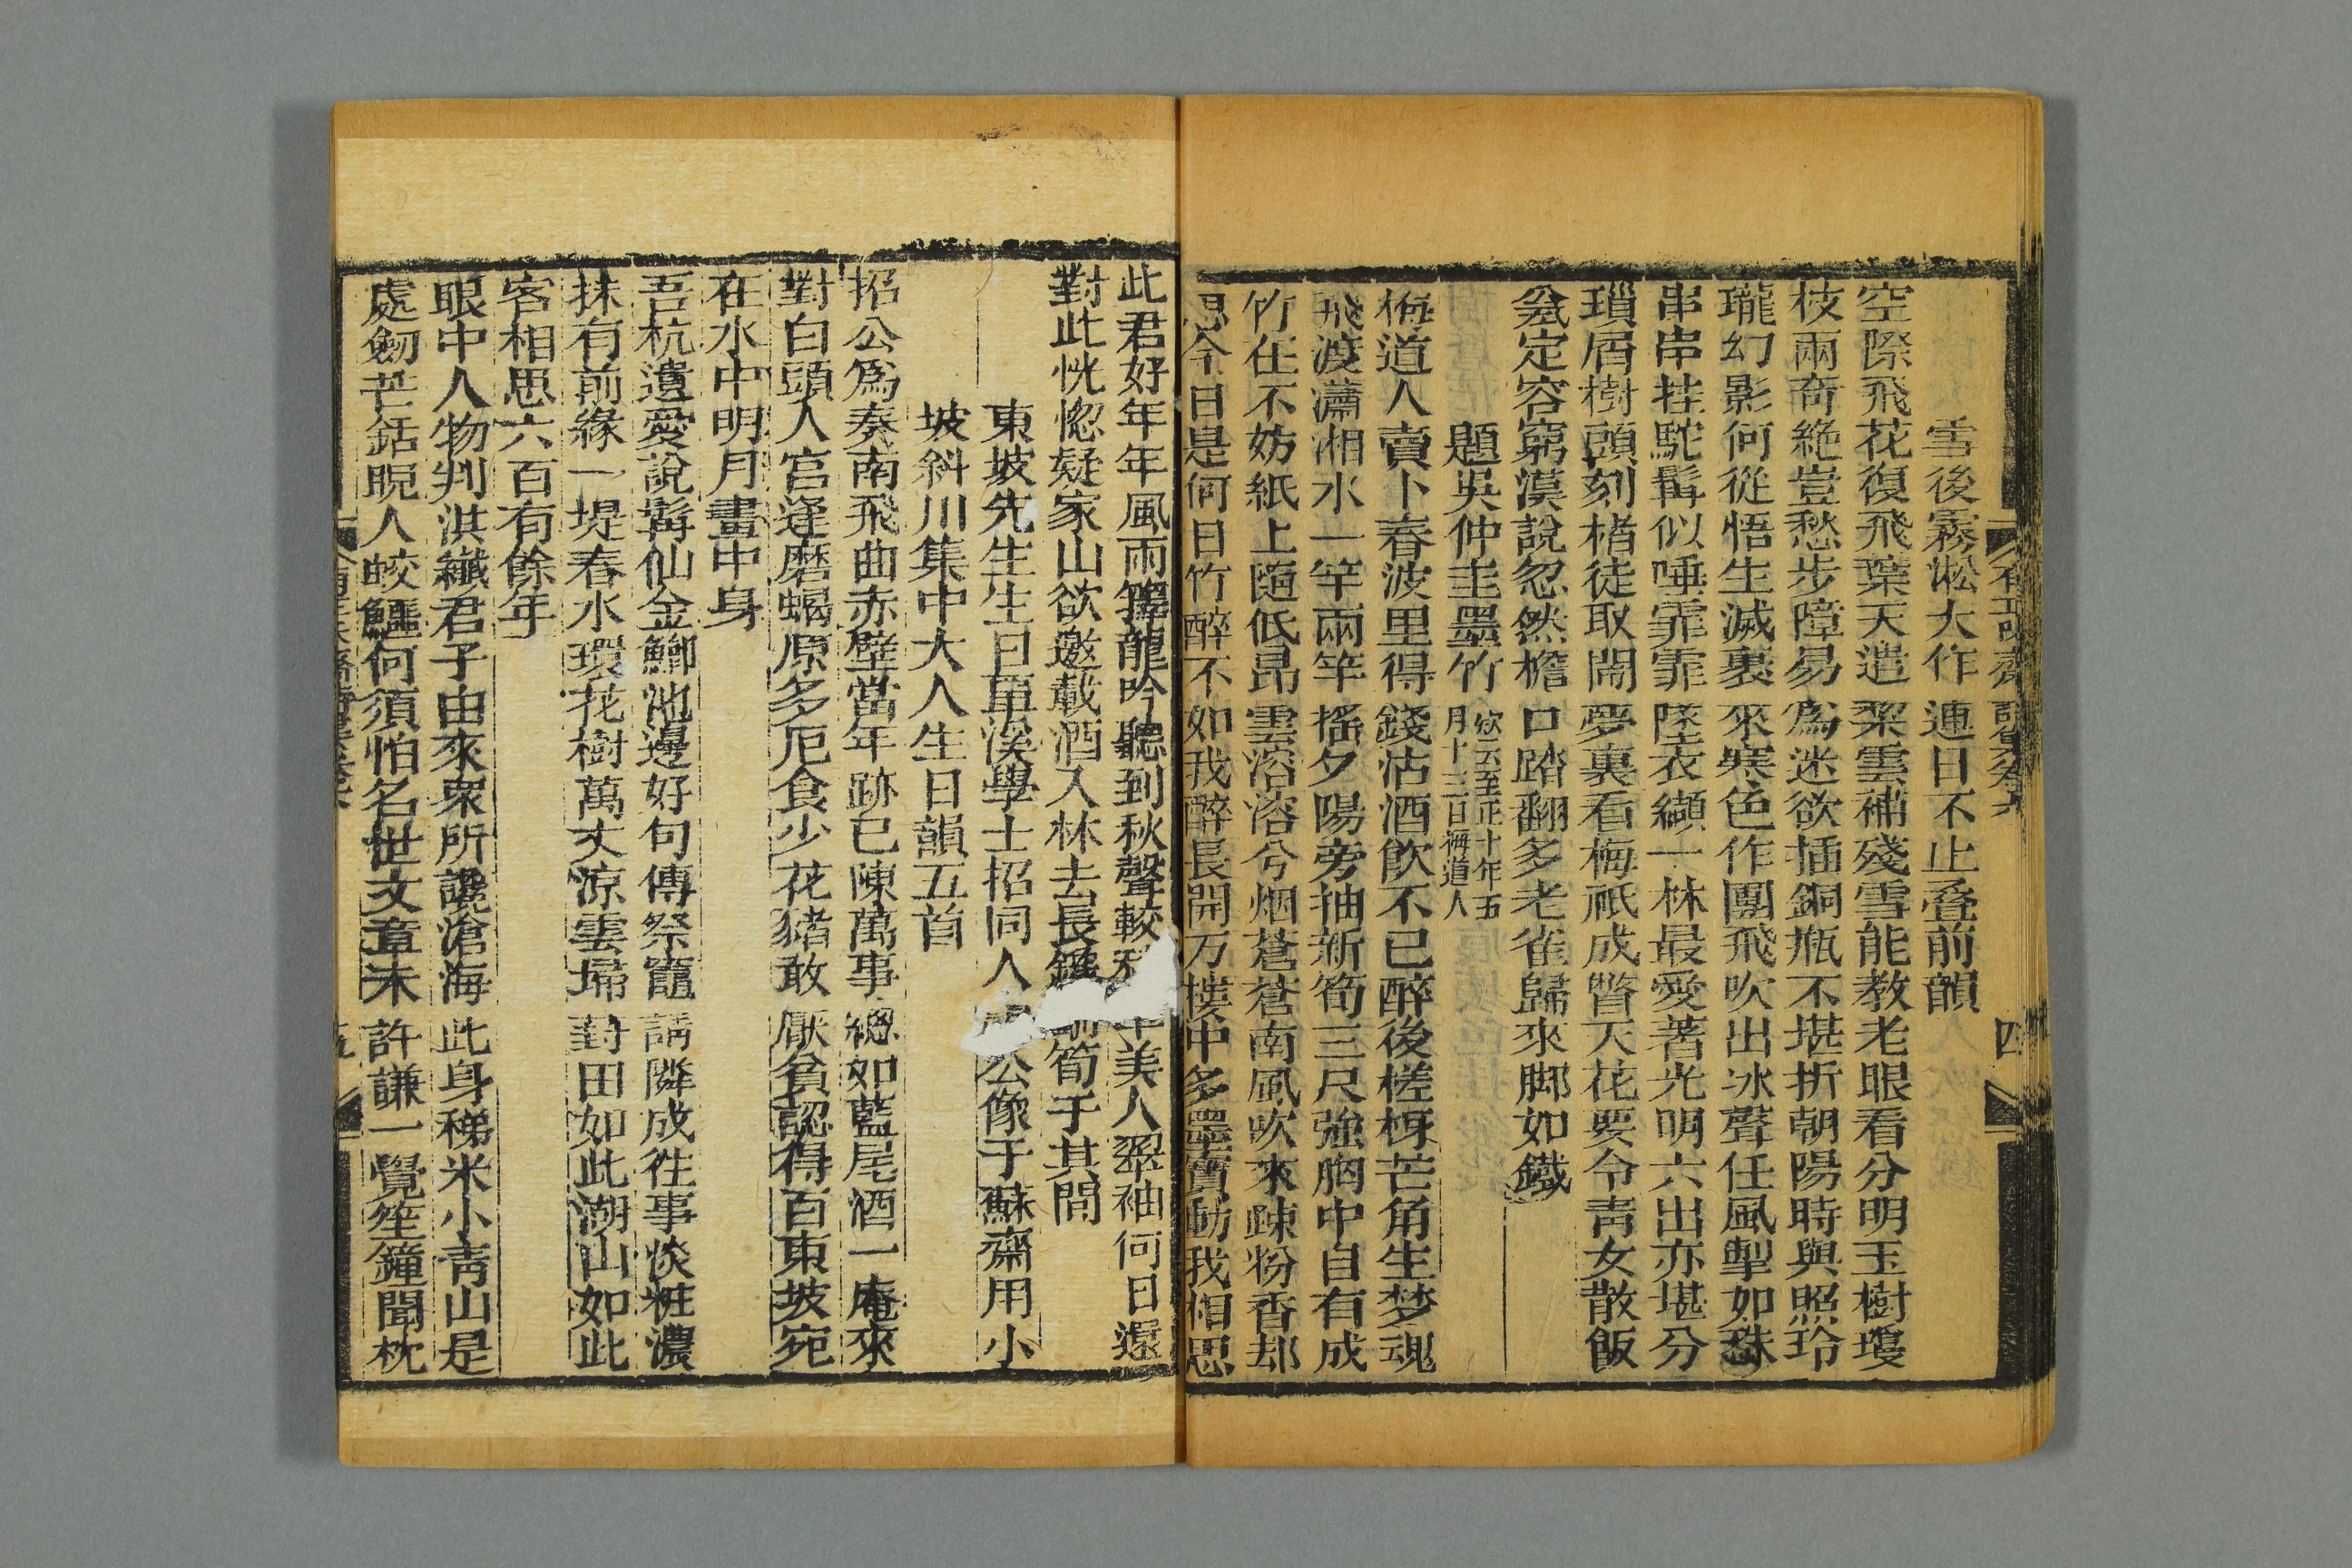 雪後霧淞大作連日不止叠前韻
空際飛花復飛葉天遣絮雲補殘雪能教老眼看分明玉樹瓊
枝兩奇絶豈愁步障易爲迷欲插銅瓶不堪折朝陽時與照玲
瓏幻影何從悟生滅裹來寒色作團飛吹出冰聲任風掣如悉
串串挂駝髯似唾霏霏墜衣纈一林最愛著光明六出亦堪分
瑣屑樹頭刻楮徒取鬧夢裏看梅祇成瞥天花要令青女散飯
定容窮漠說忽然檐口踏翻多老雀歸來脚如鐵
題吳仲圭墨竹欵云至正十年五月十三日梅道人
梅道人賣卜春波里得錢沽酒飲不已醉後槎枒芒角生梦魂
飛渡瀟湘水一竿兩竿搖夕陽旁抽新筍三尺強胸中自有成
竹在不妨紙上隨低昂雲溶溶兮烟蒼蒼南風吹來踈粉香却
思今日是何日竹醉不如我醉長開万樓中多墨寶動我相思
此君好年年風雨籜龍吟聽到秋聲較美人翠袖何日還
對此恍惚疑家山欲邀載酒入林去長鑱斸筍于其間
東坡先生生日覃溪學士招同人公像于蘇齋用小
坡斜川集中大人生日韻五首
招公爲奏南飛曲赤壁當年跡已陳萬事總如藍尾酒一庵來
對白頭人宮逢磨蝎原多厄食少花豬敢厭貧認得百東坡宛
在水中明月畫中身
吾杭遺愛說髯仙金鯽池邊好句傳祭竈請隣成徃事淡粧濃
抹有前緣一堤春水環花樹萬丈涼雲埽葑田如此湖山如此
客相思六百有餘年
眼中人物判洪纖君子由來衆所讒滄海此身稊米小靑山是
處劒芒銛睨人蛟鱷何須怕名世文章未許謙一覺笙鐘聞枕